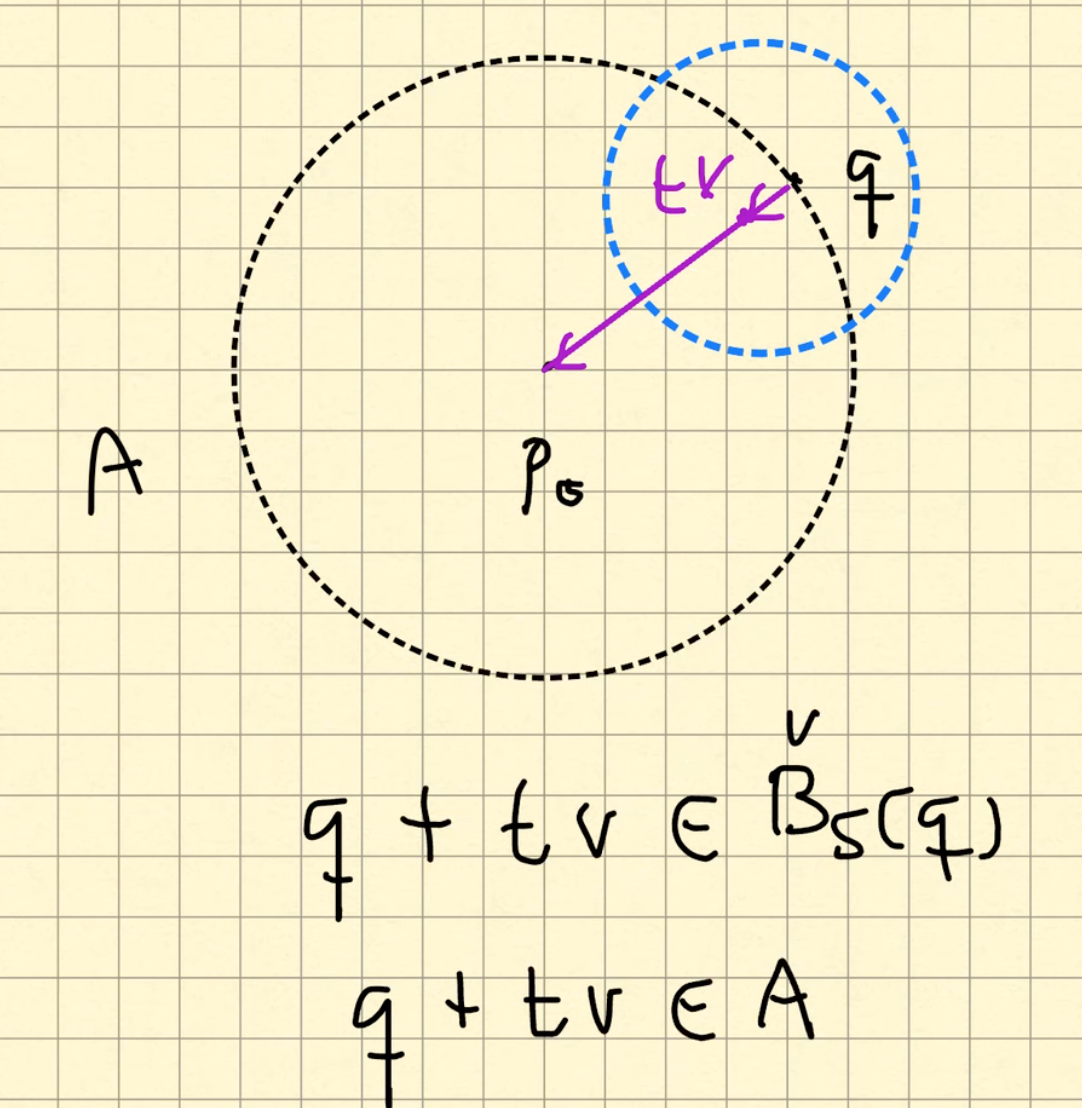 tv q
A
P₀
v
q + tv ∈ B₅(q)
q + tv ∈ A